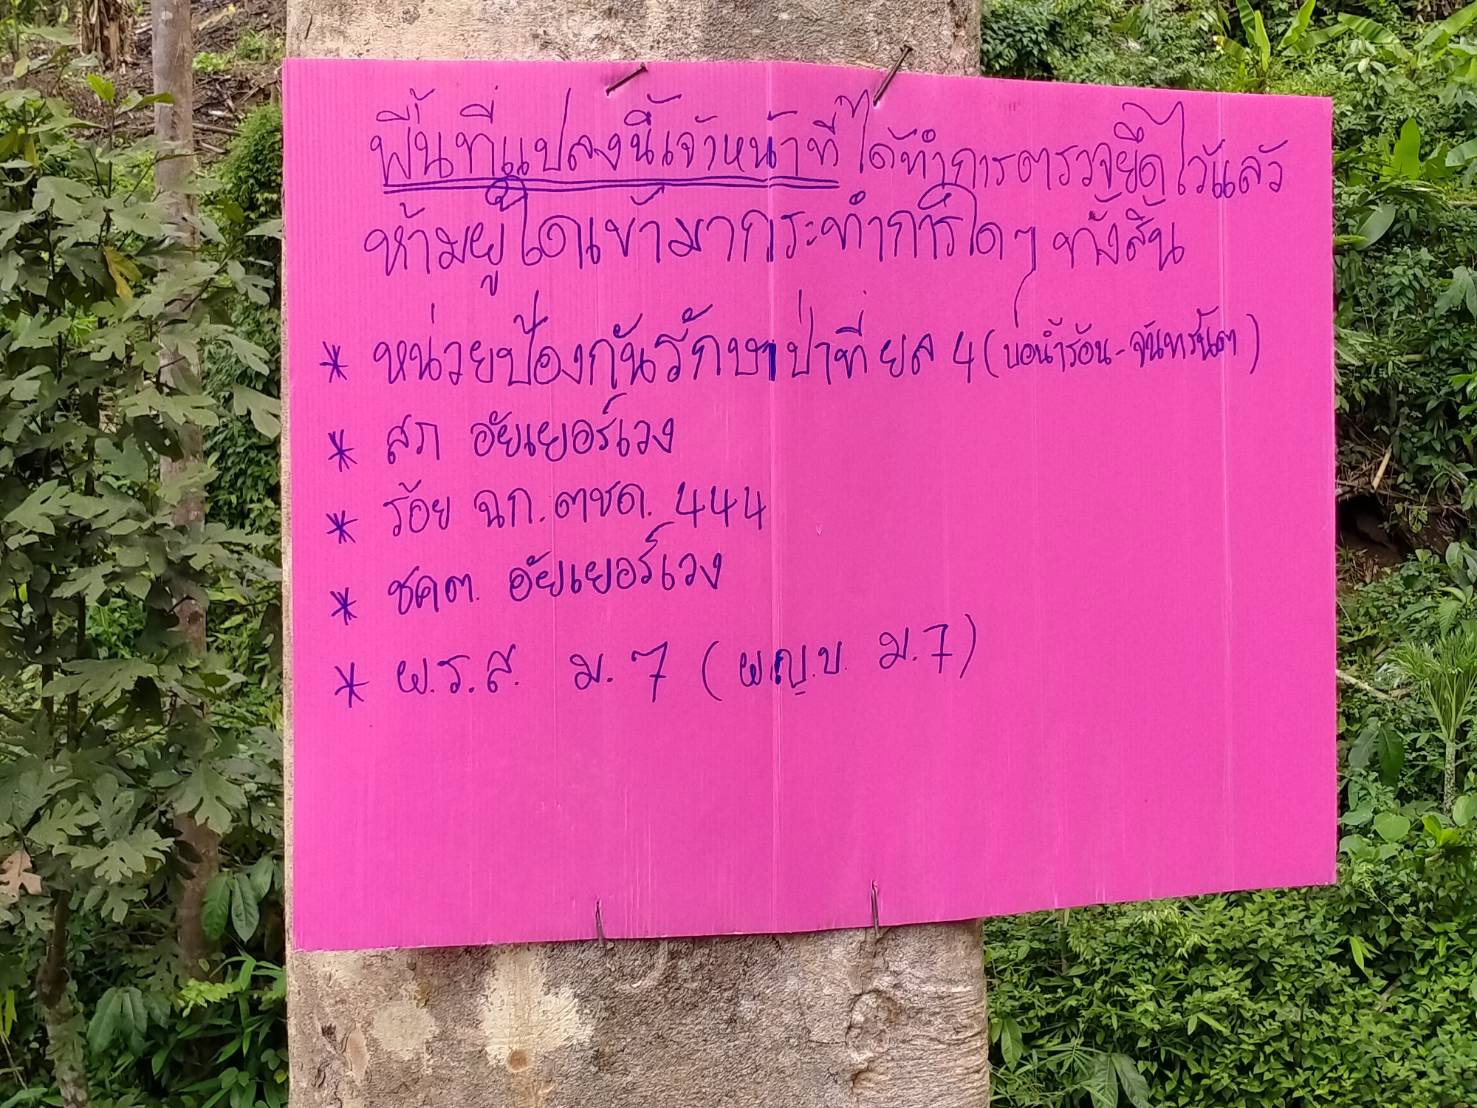 พื้นที่แปลงนี้เจ้าหน้าที่ได้ทำการตรวจยึดไว้แล้ว
ห้ามผู้ใดเข้ามากระทำการใดๆ ทั้งสิ้น
* หน่วยป้องกันรักษาป่าที่ ยล 4 (บ่อน้ำร้อน-จันทรัตน์)
* สภ อัยเยอร์เวง
* ร้อย ฉก.ตชด. 444
* ชคต. อัยเยอร์เวง
* ผ.ร.ส. ม.7 (ผญ.บ. ม.7)